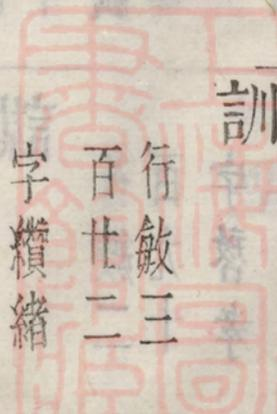 訓
行敏三
百廿二
字纘緒